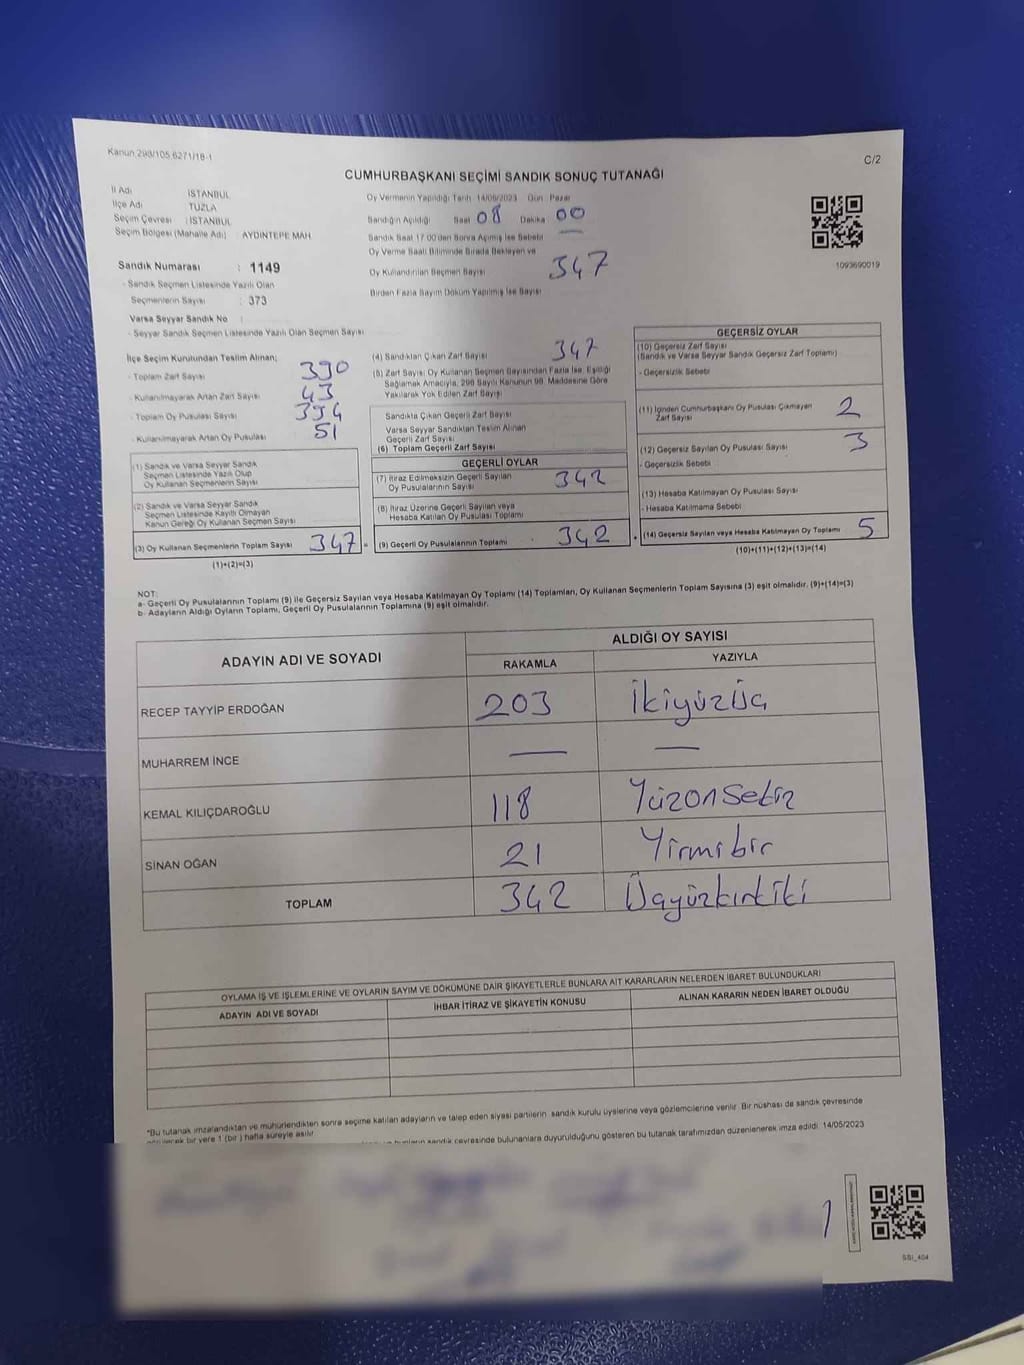 Kanun 298/105,6271/18-1
C/2
CUMHURBAŞKANI SEÇİMİ SANDIK SONUÇ TUTANAĞI
İl Adı İSTANBUL
İlçe Adı TUZLA
Seçim Çevresi : İSTANBUL
Seçim Bölgesi (Mahalle Adı) : AYDINTEPE MAH.
Oy Vermenin Yapıldığı Tarih 14/05/2023 Gün Pazar
Sandığın Açıldığı Saat 08 Dakika 00
Sandık Saat 17.00'den Sonra Açılmış İse Sebebi —
Oy Verme Saati Bitiminde Sırada Bekleyen ve
Oy Kullandırılan Seçmen Sayısı 347
Birden Fazla Sayım Döküm Yapılmış İse Sayısı
1093690019
Sandık Numarası : 1149
- Sandık Seçmen Listesinde Yazılı Olan
Seçmenlerin Sayısı : 373
Varsa Seyyar Sandık No :
- Seyyar Sandık Seçmen Listesinde Yazılı Olan Seçmen Sayısı
İlçe Seçim Kurulundan Teslim Alınan;
- Toplam Zarf Sayısı 390
- Kullanılmayarak Artan Zarf Sayısı 43
- Toplam Oy Pusulası Sayısı 394
- Kullanılmayarak Artan Oy Pusulası 51
(1) Sandık ve Varsa Seyyar Sandık
Seçmen Listesinde Yazılı Olup
Oy Kullanan Seçmenlerin Sayısı
(2) Sandık ve Varsa Seyyar Sandık
Seçmen Listesinde Kayıtlı Olmayan
Kanun Gereği Oy Kullanan Seçmen Sayısı
(3) Oy Kullanan Seçmenlerin Toplam Sayısı 347 =
(1)+(2)=(3)
(4) Sandıktan Çıkan Zarf Sayısı 347
(5) Zarf Sayısı Oy Kullanan Seçmen Sayısından Fazla İse, Eşitliği
Sağlamak Amacıyla, 298 Sayılı Kanunun 98. Maddesine Göre
Yakılarak Yok Edilen Zarf Sayısı
Sandıkta Çıkan Geçerli Zarf Sayısı
Varsa Seyyar Sandıktan Teslim Alınan
Geçerli Zarf Sayısı
(6) Toplam Geçerli Zarf Sayısı
GEÇERLİ OYLAR
(7) İtiraz Edilmeksizin Geçerli Sayılan
Oy Pusulalarının Sayısı 342
(8) İtiraz Üzerine Geçerli Sayılan veya
Hesaba Katılan Oy Pusulası Toplamı
(9) Geçerli Oy Pusulalarının Toplamı 342 +
GEÇERSİZ OYLAR
(10) Geçersiz Zarf Sayısı
(Sandık ve Varsa Seyyar Sandık Geçersiz Zarf Toplamı)
- Geçersizlik Sebebi
(11) İçinden Cumhurbaşkanı Oy Pusulası Çıkmayan
Zarf Sayısı 2
(12) Geçersiz Sayılan Oy Pusulası Sayısı 3
- Geçersizlik Sebebi
(13) Hesaba Katılmayan Oy Pusulası Sayısı
- Hesaba Katılmama Sebebi
(14) Geçersiz Sayılan veya Hesaba Katılmayan Oy Toplamı 5
(10)+(11)+(12)+(13)=(14)
NOT:
a- Geçerli Oy Pusulalarının Toplamı (9) ile Geçersiz Sayılan veya Hesaba Katılmayan Oy Toplamı (14) Toplamları, Oy Kullanan Seçmenlerin Toplam Sayısına (3) eşit olmalıdır. (9)+(14)=(3)
b- Adayların Aldığı Oyların Toplamı, Geçerli Oy Pusulalarının Toplamına (9) eşit olmalıdır.
ADAYIN ADI VE SOYADI
ALDIĞI OY SAYISI
RAKAMLA YAZIYLA
RECEP TAYYİP ERDOĞAN 203 İkiyüzüç
MUHARREM İNCE — —
KEMAL KILIÇDAROĞLU 118 Yüzonsekiz
SİNAN OĞAN 21 Yirmibir
TOPLAM 342 Üçyüzkırkiki
OYLAMA İŞ VE İŞLEMLERİNE VE OYLARIN SAYIM VE DÖKÜMÜNE DAİR ŞİKAYETLERLE BUNLARA AİT KARARLARIN NELERDEN İBARET BULUNDUKLARI
ADAYIN ADI VE SOYADI
İHBAR İTİRAZ VE ŞİKAYETİN KONUSU
ALINAN KARARIN NEDEN İBARET OLDUĞU
*Bu tutanak imzalandıktan ve mühürlendikten sonra seçime katılan adayların ve talep eden siyasi partilerin sandık kurulu üyelerine veya gözlemcilerine verilir. Bir nüshası da sandık çevresinde
bir yere 1 (bir) hafta süreyle asılır.
sandık çevresinde bulunanlara duyurulduğunu gösteren bu tutanak tarafımızdan düzenlenerek imza edildi. 14/05/2023
SSI_404